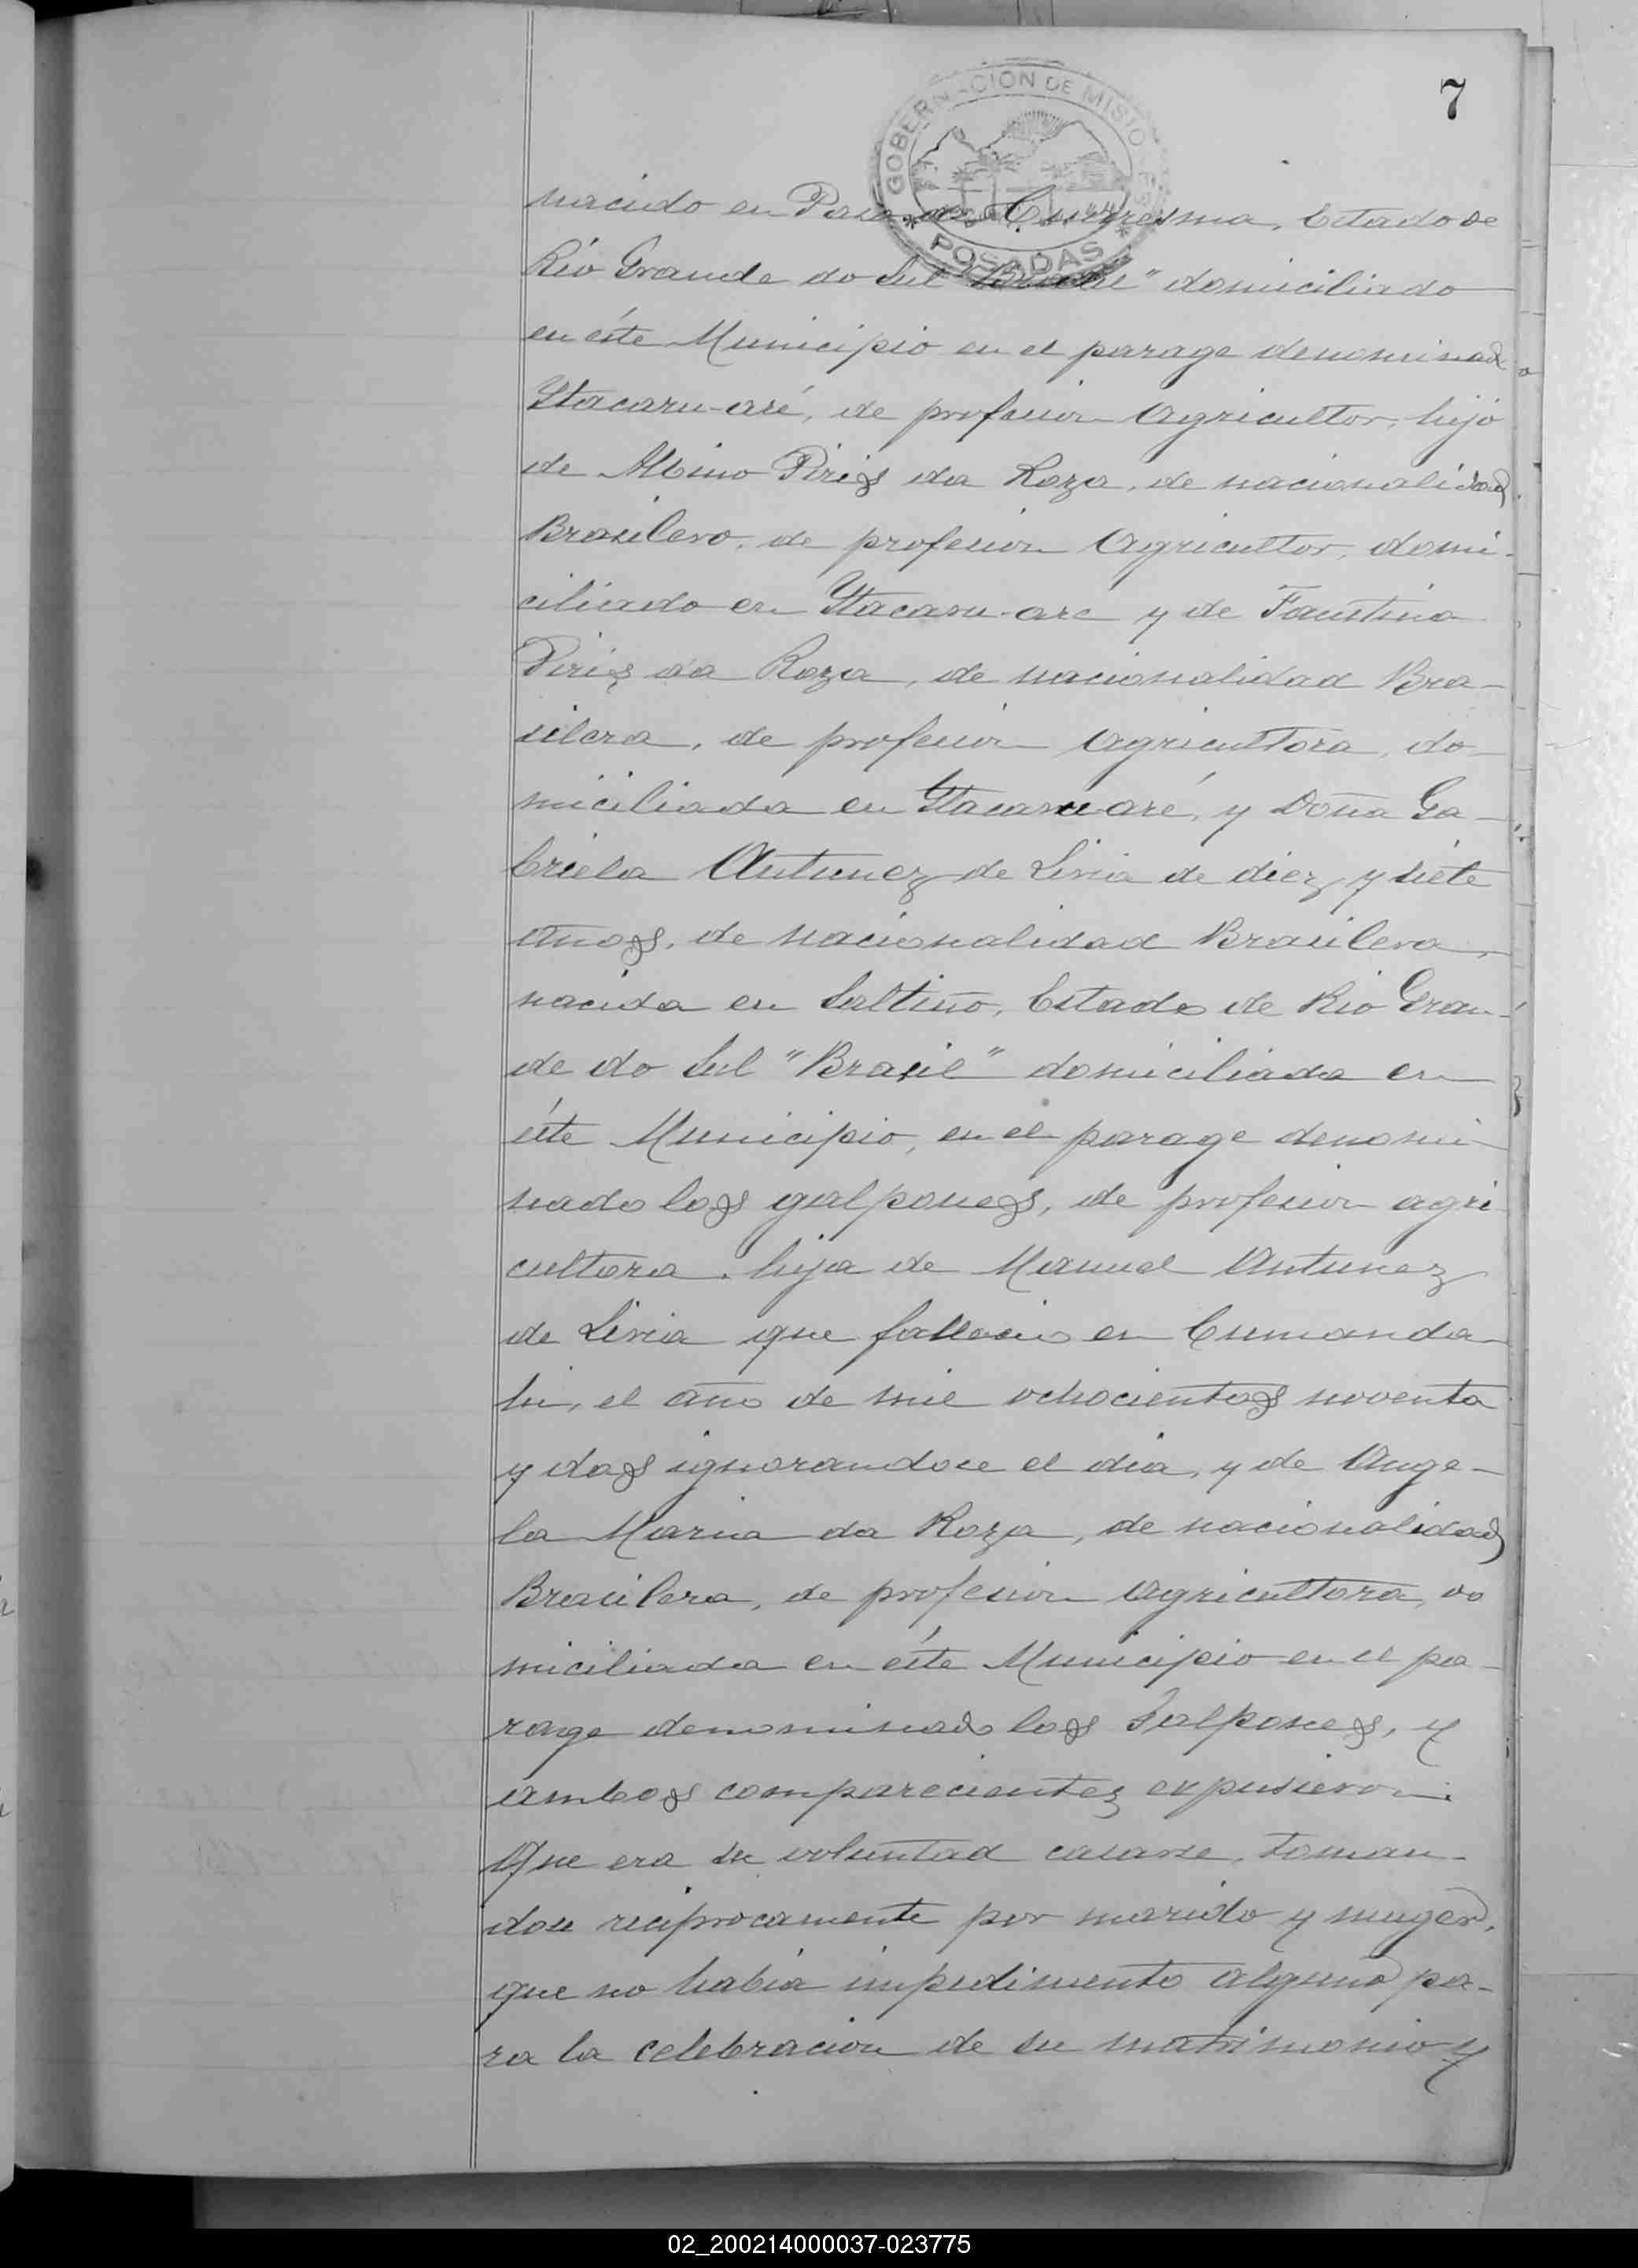 7
GOBERNACION DE MISIONES
* POSADAS *
nacido en Paso da Estado de
Rio Grande do Sul "Brasil" domiciliado
en éste Municipio en el parage denominado
Ytacaru-aré, de profesion Agricultor, hijo
de Albino Piriz da Roza, de nacionalidad
Brasilero, de profesion Agricultor, domi-
ciliado en Ytacaru-are y de Faustina
Piriz da Roza, de nacionalidad Bra-
silera, de profesion Agricultora, do-
miciliada en Ytacaru-aré, y Doña Ga-
briela Antunez de Liria de diez y siete
años, de nacionalidad Brasilera,
nacida en Saltiño, Estado de Rio Gran-
de do Sul "Brasil" domiciliada en
éste Municipio, en el parage denomi-
nado los galpones, de profesion agri
cultora, hija de Manuel Antunez
de Liria que fallecio en Cumanda-
hi, el año de mil ochocientos noventa
y dos ignorandose el dia, y de Ange-
la Maria da Roza, de nacionalidad
Bracilera, de profesion Agricultora, do
miciliada en éste Municipio en el pa-
rage denominado los Galpones, y
ambos comparecientes expusieron:
Que era su voluntad casarse, toman-
dose reciprocamente por marido y muger,
que no habia impedimento alguno pa-
ra la celebracion de su matrimonio y
02_200214000037-023775